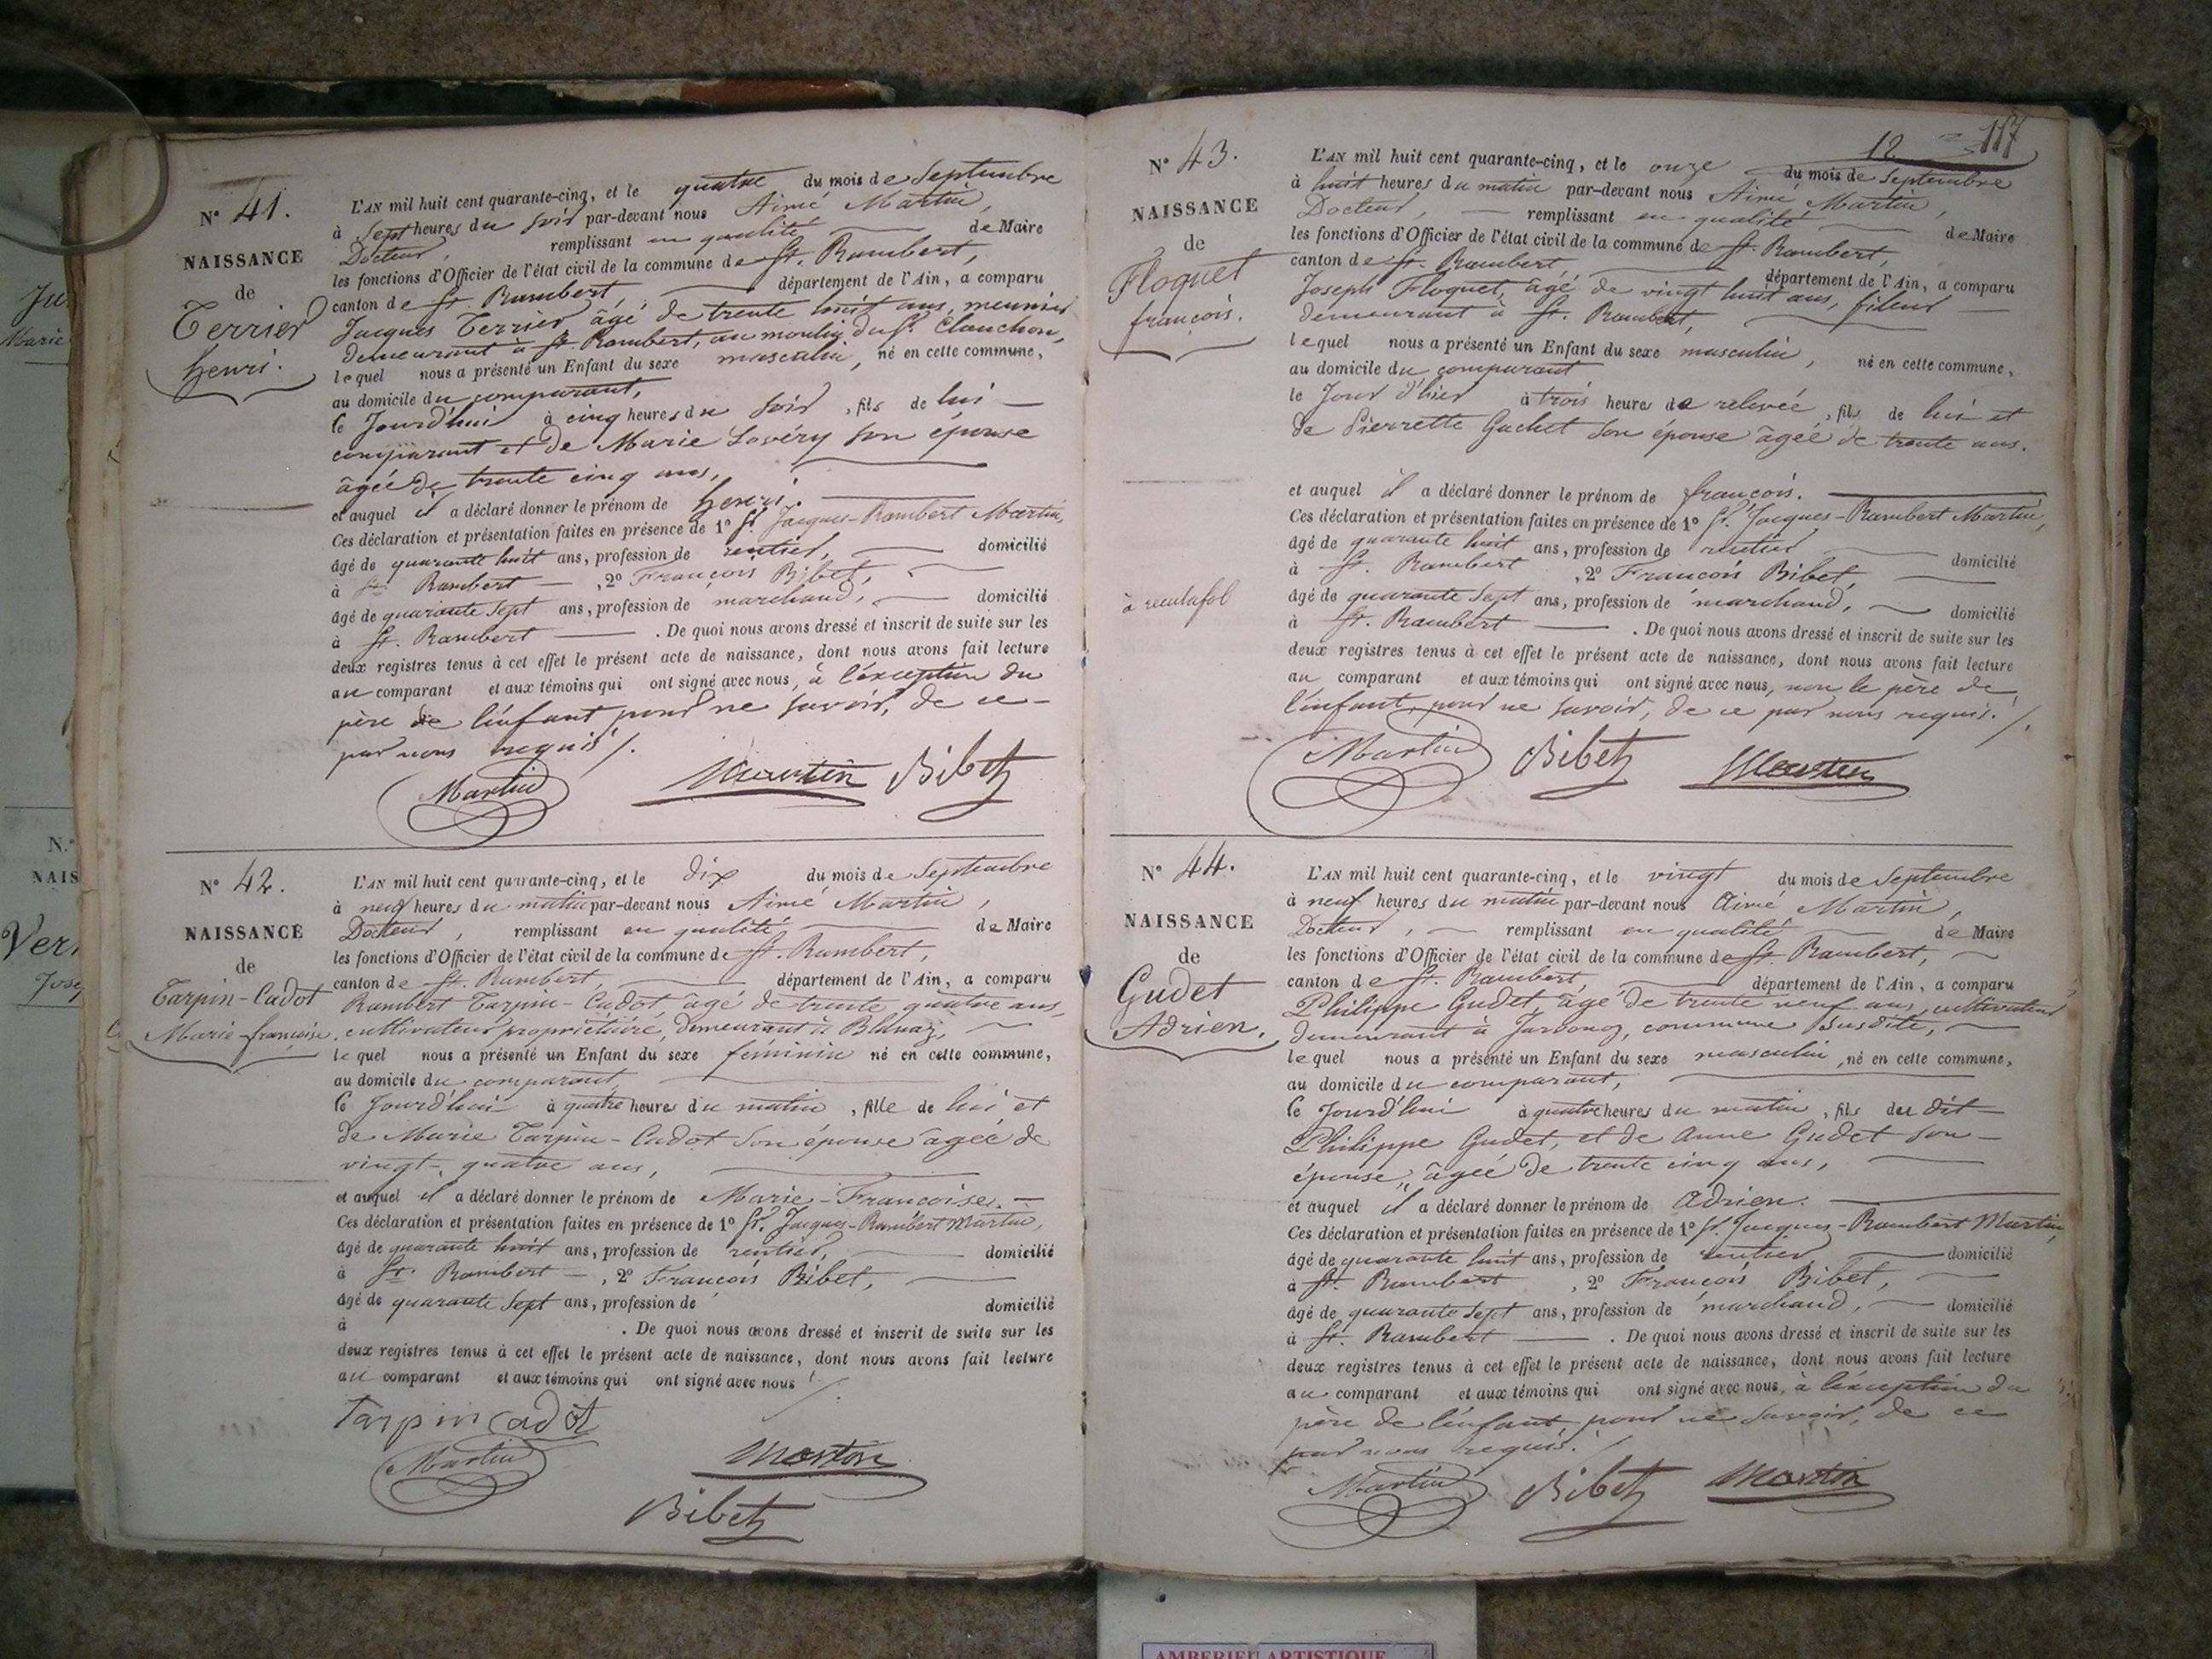 N° 41.
NAISSANCE
de
Terrier
henri.
L'AN mil huit cent quarante-cinq, et le quatre du mois de Septembre
à Sept heures du soir par-devant nous Aimé Martin,
Docteur, remplissant en qualité de Maire
les fonctions d'Officier de l'état civil de la commune de St. Rambert,
canton de St. Rambert département de l'Ain, a comparu
Jacques Terrier âgé de trente huit ans, meunier
demeurant à St. Rambert, au moulin du Sr. Clauchon,
lequel nous a présenté un Enfant du sexe masculin, né en cette commune,
au domicile du comparant,
le Jourd'hui à cinq heures du soir, fils de lui
comparant et de Marie Lovéry son épouse
âgée de trente cinq ans,
et auquel il a déclaré donner le prénom de henri.
Ces déclaration et présentation faites en présence de 1° Sr. Jacques-Rambert Martin,
âgé de quarante huit ans, profession de rentier, domicilié
à St. Rambert, 2° François Bibet,
âgé de quarante sept ans, profession de marchand, domicilié
à St. Rambert. De quoi nous avons dressé et inscrit de suite sur les
deux registres tenus à cet effet le présent acte de naissance, dont nous avons fait lecture
au comparant et aux témoins qui ont signé avec nous, à l'exception du
père de l'enfant pour ne savoir, de ce
par nous requis /.
Martin Martin Bibet
N° 42.
NAISSANCE
de
Tarpin-Cadot
Marie françoise.
L'AN mil huit cent quarante-cinq, et le dix du mois de Septembre
à neuf heures du matin par-devant nous Aimé Martin,
Docteur, remplissant en qualité de Maire
les fonctions d'Officier de l'état civil de la commune de St. Rambert,
canton de St. Rambert, département de l'Ain, a comparu
Rambert Tarpin-Cadot, âgé de trente quatre ans,
cultivateur propriétaire, demeurant à Blanaz,
lequel nous a présenté un Enfant du sexe féminin né en cette commune,
au domicile du comparant
le Jourd'hui à quatre heures du matin, fille de lui et
de Marie Tarpin-Cadot son épouse âgée de
vingt-quatre ans,
et auquel il a déclaré donner le prénom de Marie-Françoise.
Ces déclaration et présentation faites en présence de 1° Sr. Jacques-Rambert Martin,
âgé de quarante huit ans, profession de rentier, domicilié
à St. Rambert, 2° François Bibet,
âgé de quarante sept ans, profession de domicilié
à . De quoi nous avons dressé et inscrit de suite sur les
deux registres tenus à cet effet le présent acte de naissance, dont nous avons fait lecture
au comparant et aux témoins qui ont signé avec nous /.
Tarpin Cadot
Martin Martin
Bibet
12 117
N° 43.
NAISSANCE
de
Floquet
françois.
à reculafol
L'AN mil huit cent quarante-cinq, et le onze du mois de Septembre
à huit heures du matin par-devant nous Aimé Martin,
Docteur, remplissant en qualité de Maire
les fonctions d'Officier de l'état civil de la commune de St. Rambert,
canton de St. Rambert, département de l'Ain, a comparu
Joseph Floquet, âgé de vingt huit ans, fileur
demeurant à St. Rambert,
lequel nous a présenté un Enfant du sexe masculin, né en cette commune,
au domicile du comparant
le Jour d'hier à trois heures de relevée, fils de lui et
de Pierrette Gachet son épouse âgée de trente ans.
et auquel il a déclaré donner le prénom de françois.
Ces déclaration et présentation faites en présence de 1° Sr. Jacques-Rambert Martin,
âgé de quarante huit ans, profession de rentier domicilié
à St. Rambert, 2° François Bibet,
âgé de quarante sept ans, profession de marchand, domicilié
à St. Rambert. De quoi nous avons dressé et inscrit de suite sur les
deux registres tenus à cet effet le présent acte de naissance, dont nous avons fait lecture
au comparant et aux témoins qui ont signé avec nous, non le père de
l'enfant, pour ne savoir, de ce par nous requis. /.
Martin Bibet Martin
N° 44.
NAISSANCE
de
Gudet
Adrien.
L'AN mil huit cent quarante-cinq, et le vingt du mois de Septembre
à neuf heures du matin par-devant nous Aimé Martin,
Docteur, remplissant en qualité de Maire
les fonctions d'Officier de l'état civil de la commune de St. Rambert,
canton de St. Rambert, département de l'Ain, a comparu
Philippe Gudet, âgé de trente neuf ans, cultivateur
demeurant à Javornoz, commune susdite,
lequel nous a présenté un Enfant du sexe masculin, né en cette commune,
au domicile du comparant,
le Jourd'hui à quatre heures du matin, fils du dit
Philippe Gudet, et de Anne Gudet son
épouse, âgée de trente cinq ans,
et auquel il a déclaré donner le prénom de Adrien.
Ces déclaration et présentation faites en présence de 1° Sr. Jacques-Rambert Martin,
âgé de quarante huit ans, profession de rentier domicilié
à St. Rambert, 2° François Bibet,
âgé de quarante sept ans, profession de marchand, domicilié
à St. Rambert. De quoi nous avons dressé et inscrit de suite sur les
deux registres tenus à cet effet le présent acte de naissance, dont nous avons fait lecture
au comparant et aux témoins qui ont signé avec nous, à l'exception du
père de l'enfant pour ne savoir, de ce
par nous requis.
Martin Bibet Martin
AMBERIEU ARTISTIQUE